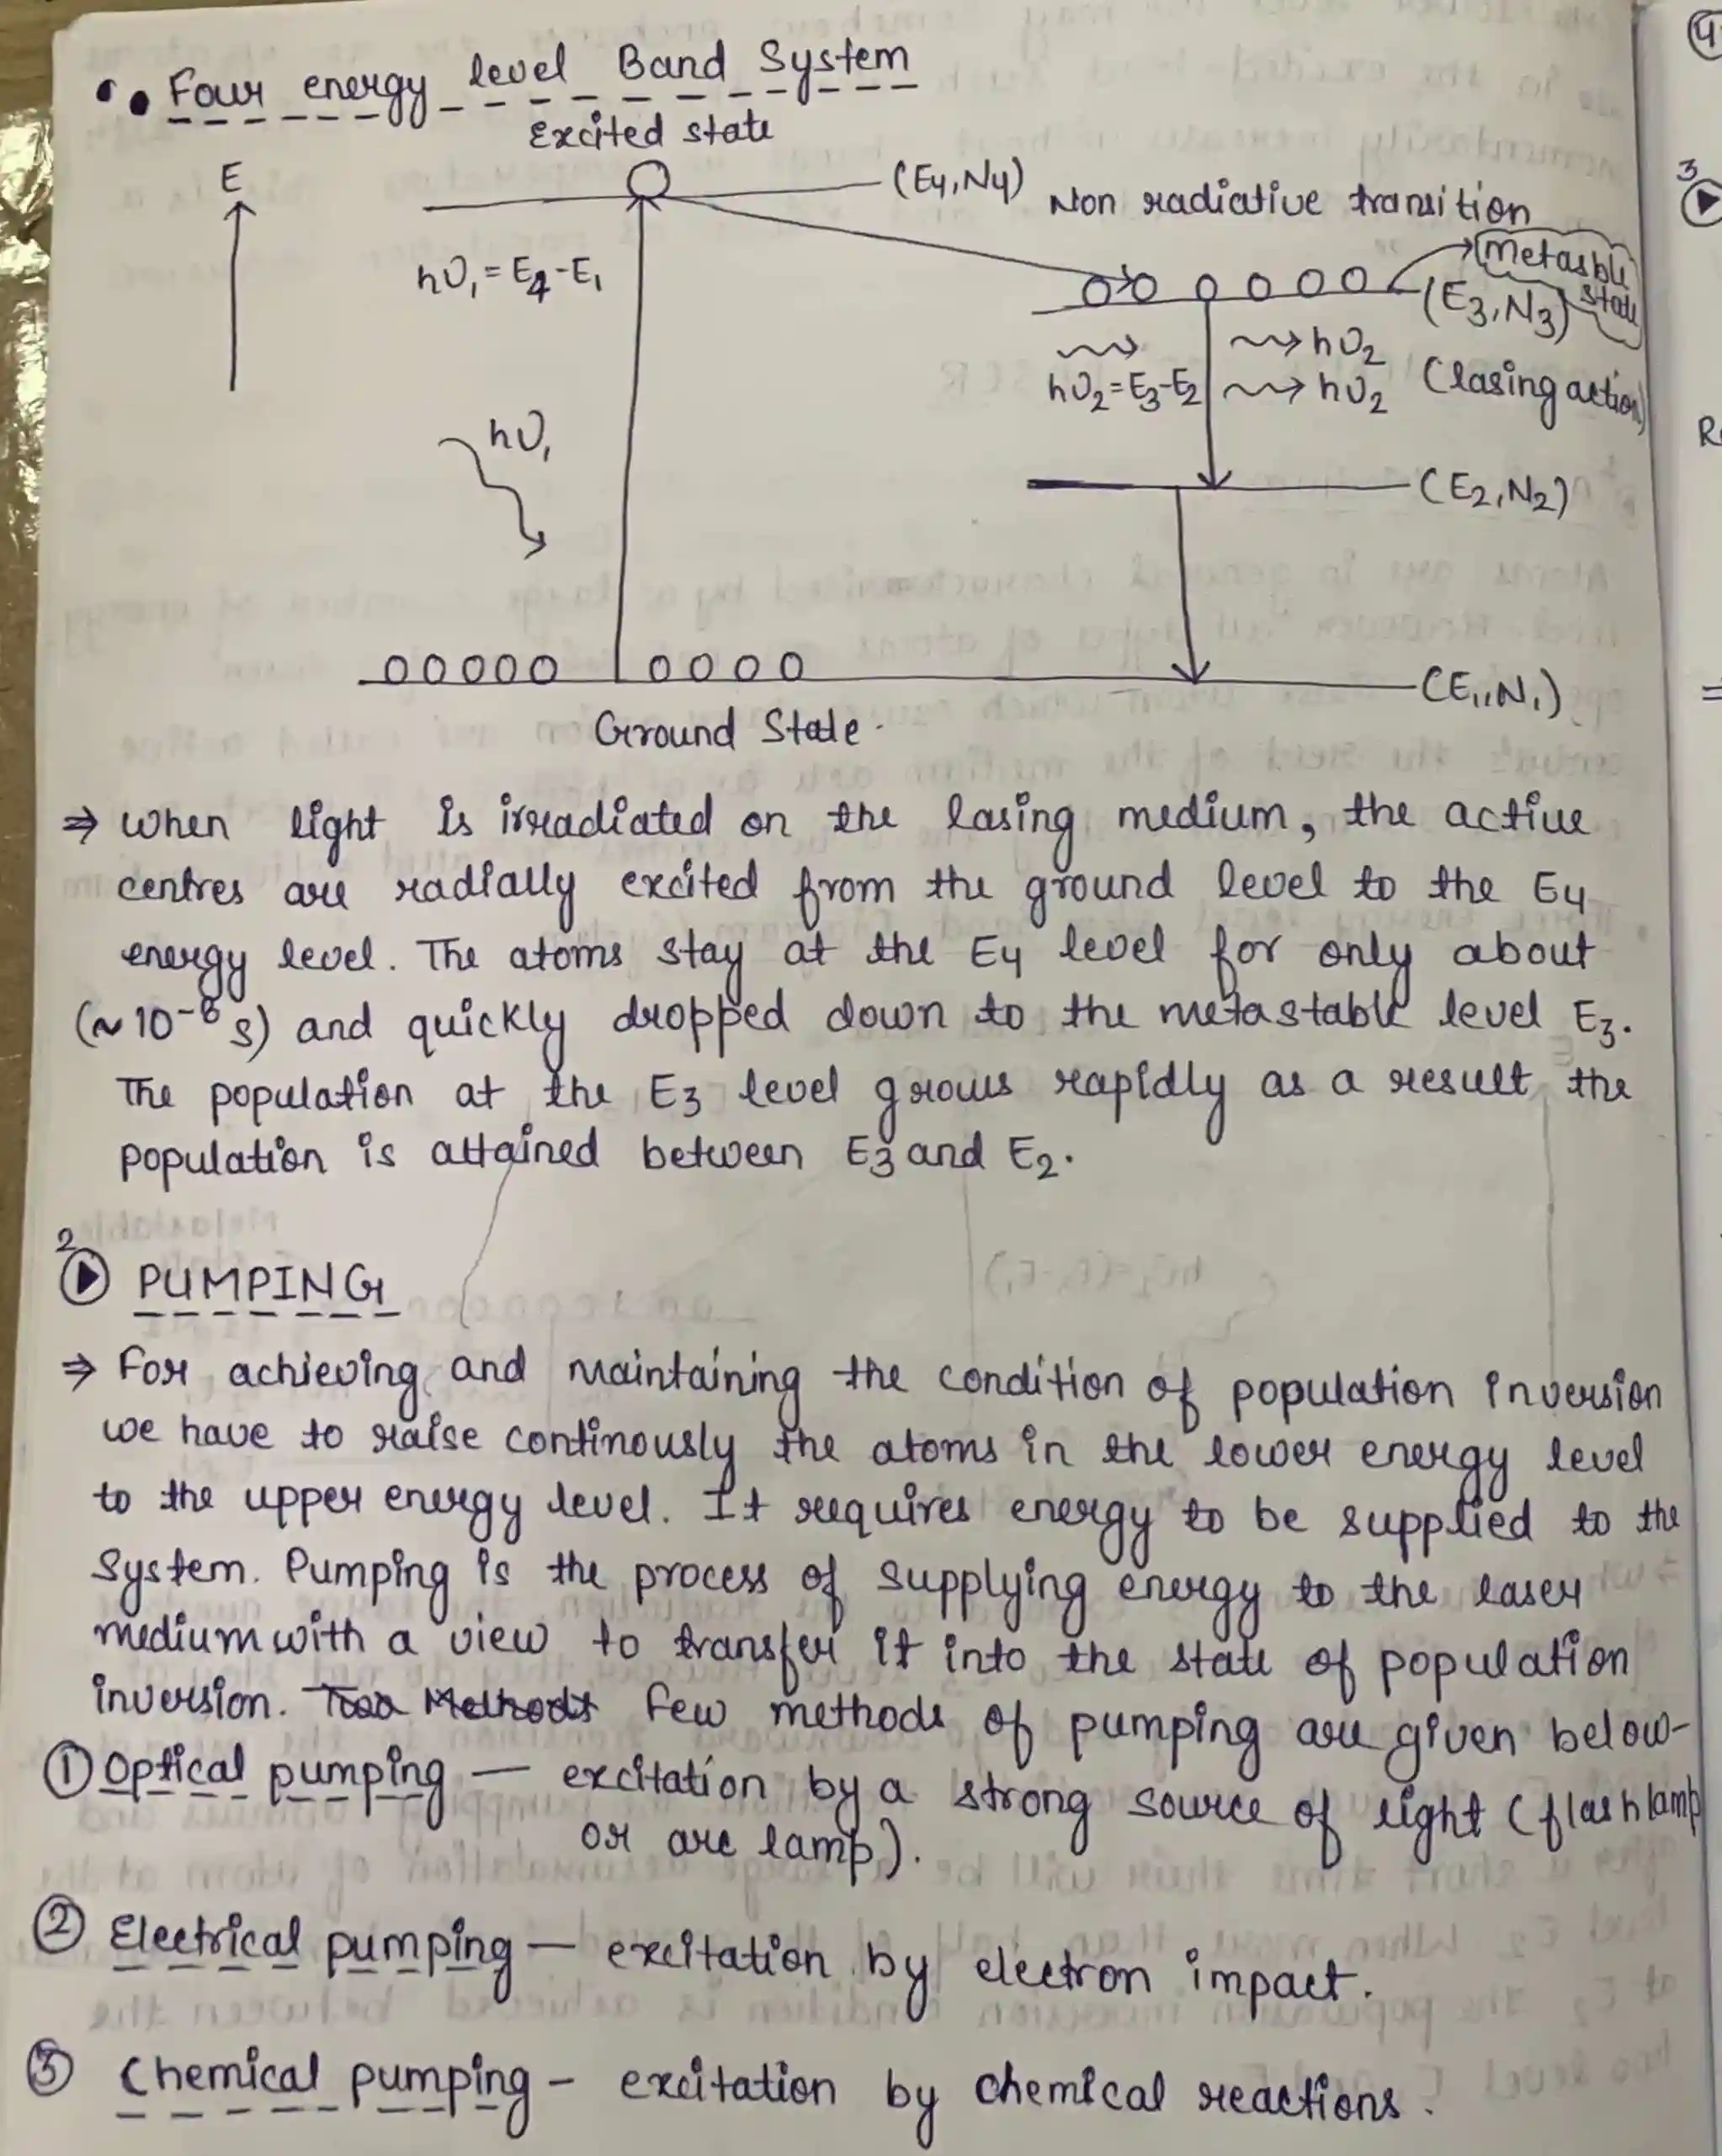 Four energy level Band System
Excited state
E
(E4,N4)
Non radiative transition
hυ1=E4-E1
Metasble
State
(E3,N3)
hυ2
hυ2=E3-E2
hυ2
(lasing action)
hυ1
(E2,N2)
(E1,N1)
Ground State.
⇒ When light is irradiated on the lasing medium, the active
centres are radially excited from the ground level to the E4
energy level. The atoms stay at the E4 level for only about
(~10-8 s) and quickly dropped down to the metastable level E3.
The population at the E3 level grows rapidly as a result the
population is attained between E3 and E2.
2
PUMPING
⇒ For achieving and maintaining the condition of population inversion
we have to raise continously the atoms in the lower energy level
to the upper energy level. It requires energy to be supplied to the
System. Pumping is the process of supplying energy to the laser
medium with a view to transfer it into the state of population
inversion. Few methods of pumping are given below-
① Optical pumping — excitation by a strong source of light (flash lamp
or arc lamp).
② Electrical pumping — excitation by electron impact.
③ Chemical pumping - excitation by chemical reactions.
4
3